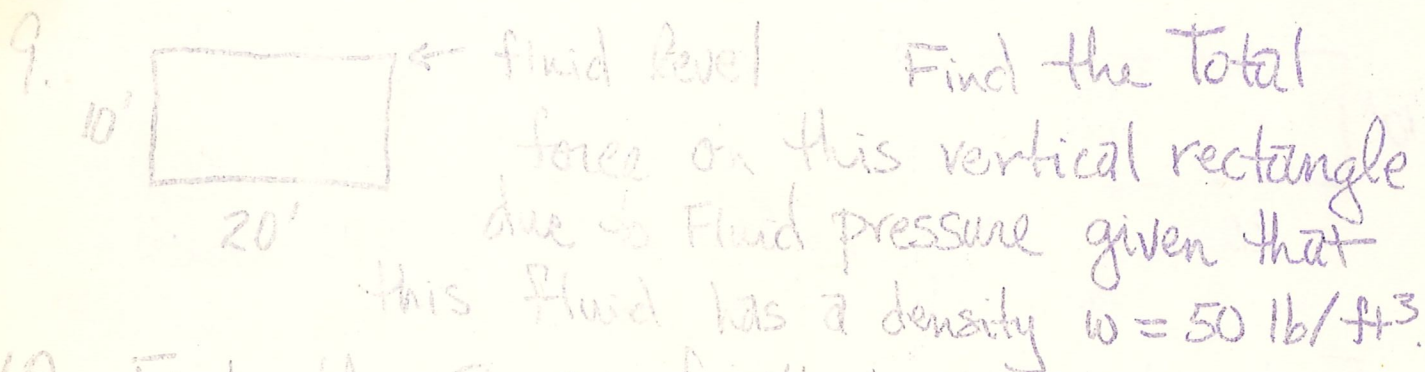 9.
10'
20'
← fluid level Find the Total
force on this vertical rectangle
due to Fluid pressure given that
this fluid has a density w = 50 lb/ft³.